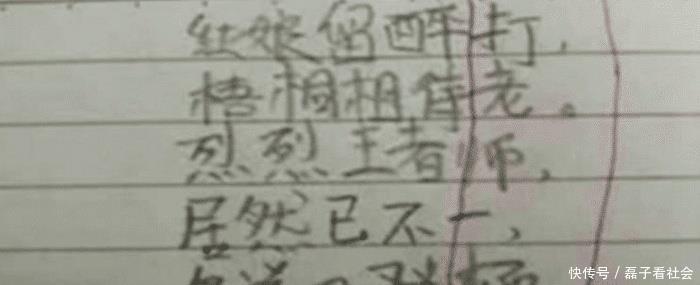 红娘留醉打，
梧桐相待老。
烈烈王者师，
居然已不一、
快传号／磊子看社会